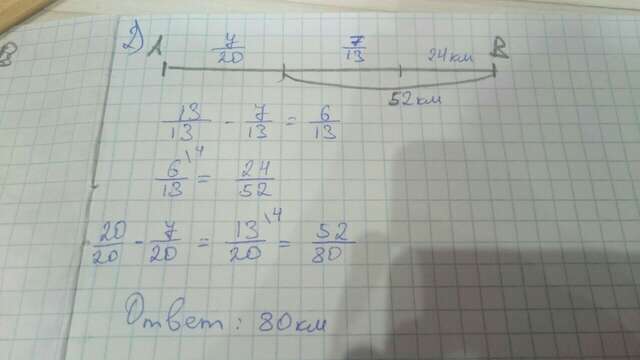 В
2) А 7/20 7/13 24км В
52км
13/13 - 7/13 = 6/13
6\4/13 = 24/52
20/20 - 7/20 = 13\4/20 = 52/80
Ответ: 80км